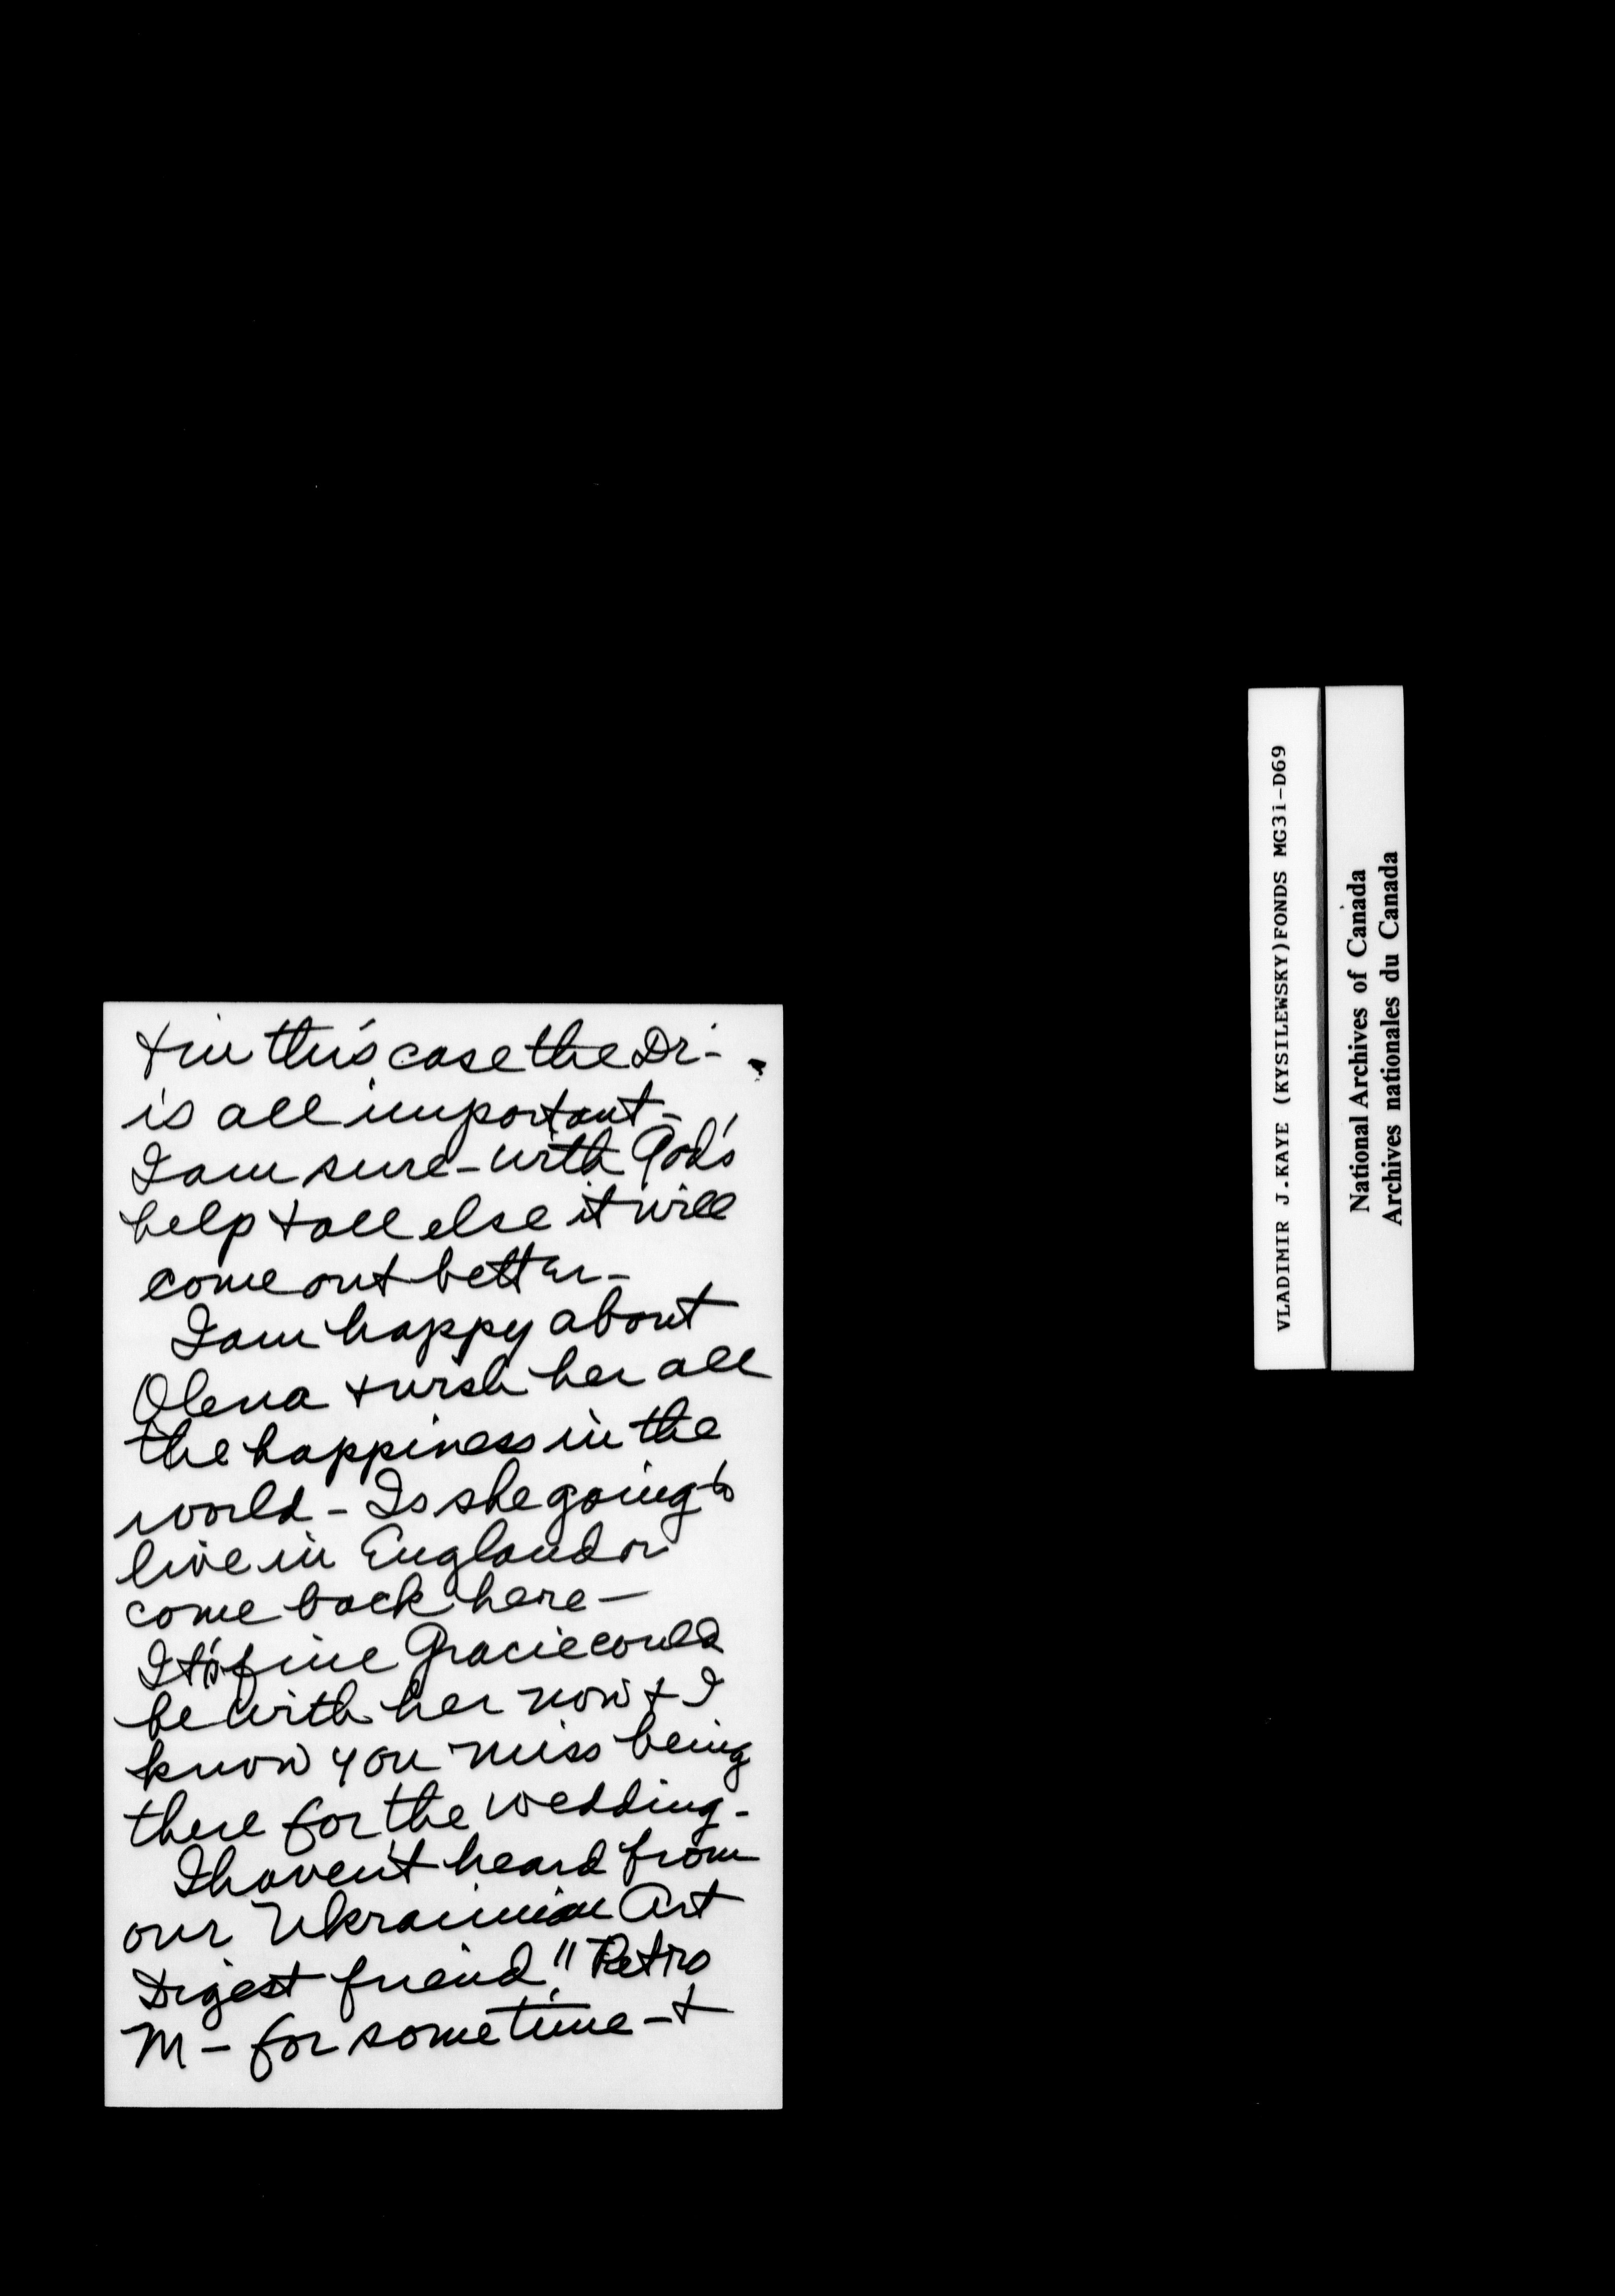 + in this case the Dr-
is all important-
I am sure - with God's
help + all else it will
come out better -
I am happy about
Olena + wish her all
the happiness in the
world - Is she going to
live in England or
come back here -
It's fine Gracie could
be with her now + I
know you miss being
there for the wedding -
I haven't heard from
our Ukrainian Art
Digest friend!! Petro
M - for sometime - +
VLADIMIR J.KAYE (KYSILEWSKY)FONDS MG31-D69
National Archives of Canada
Archives nationales du Canada